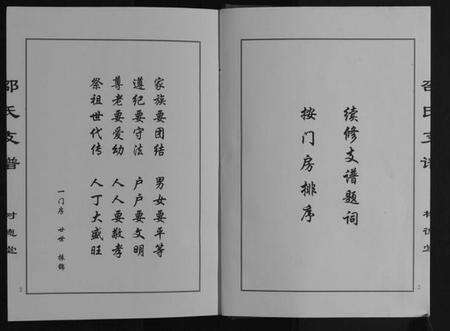 续修支谱题词
按门房排序
家族要团结 男女要平等
遵纪要守法 户户要文明
尊老要爱幼 人人要敬孝
祭祖世代传 人丁大盛旺
一门房 廿世 林锦
邵氏支谱
邵氏支谱